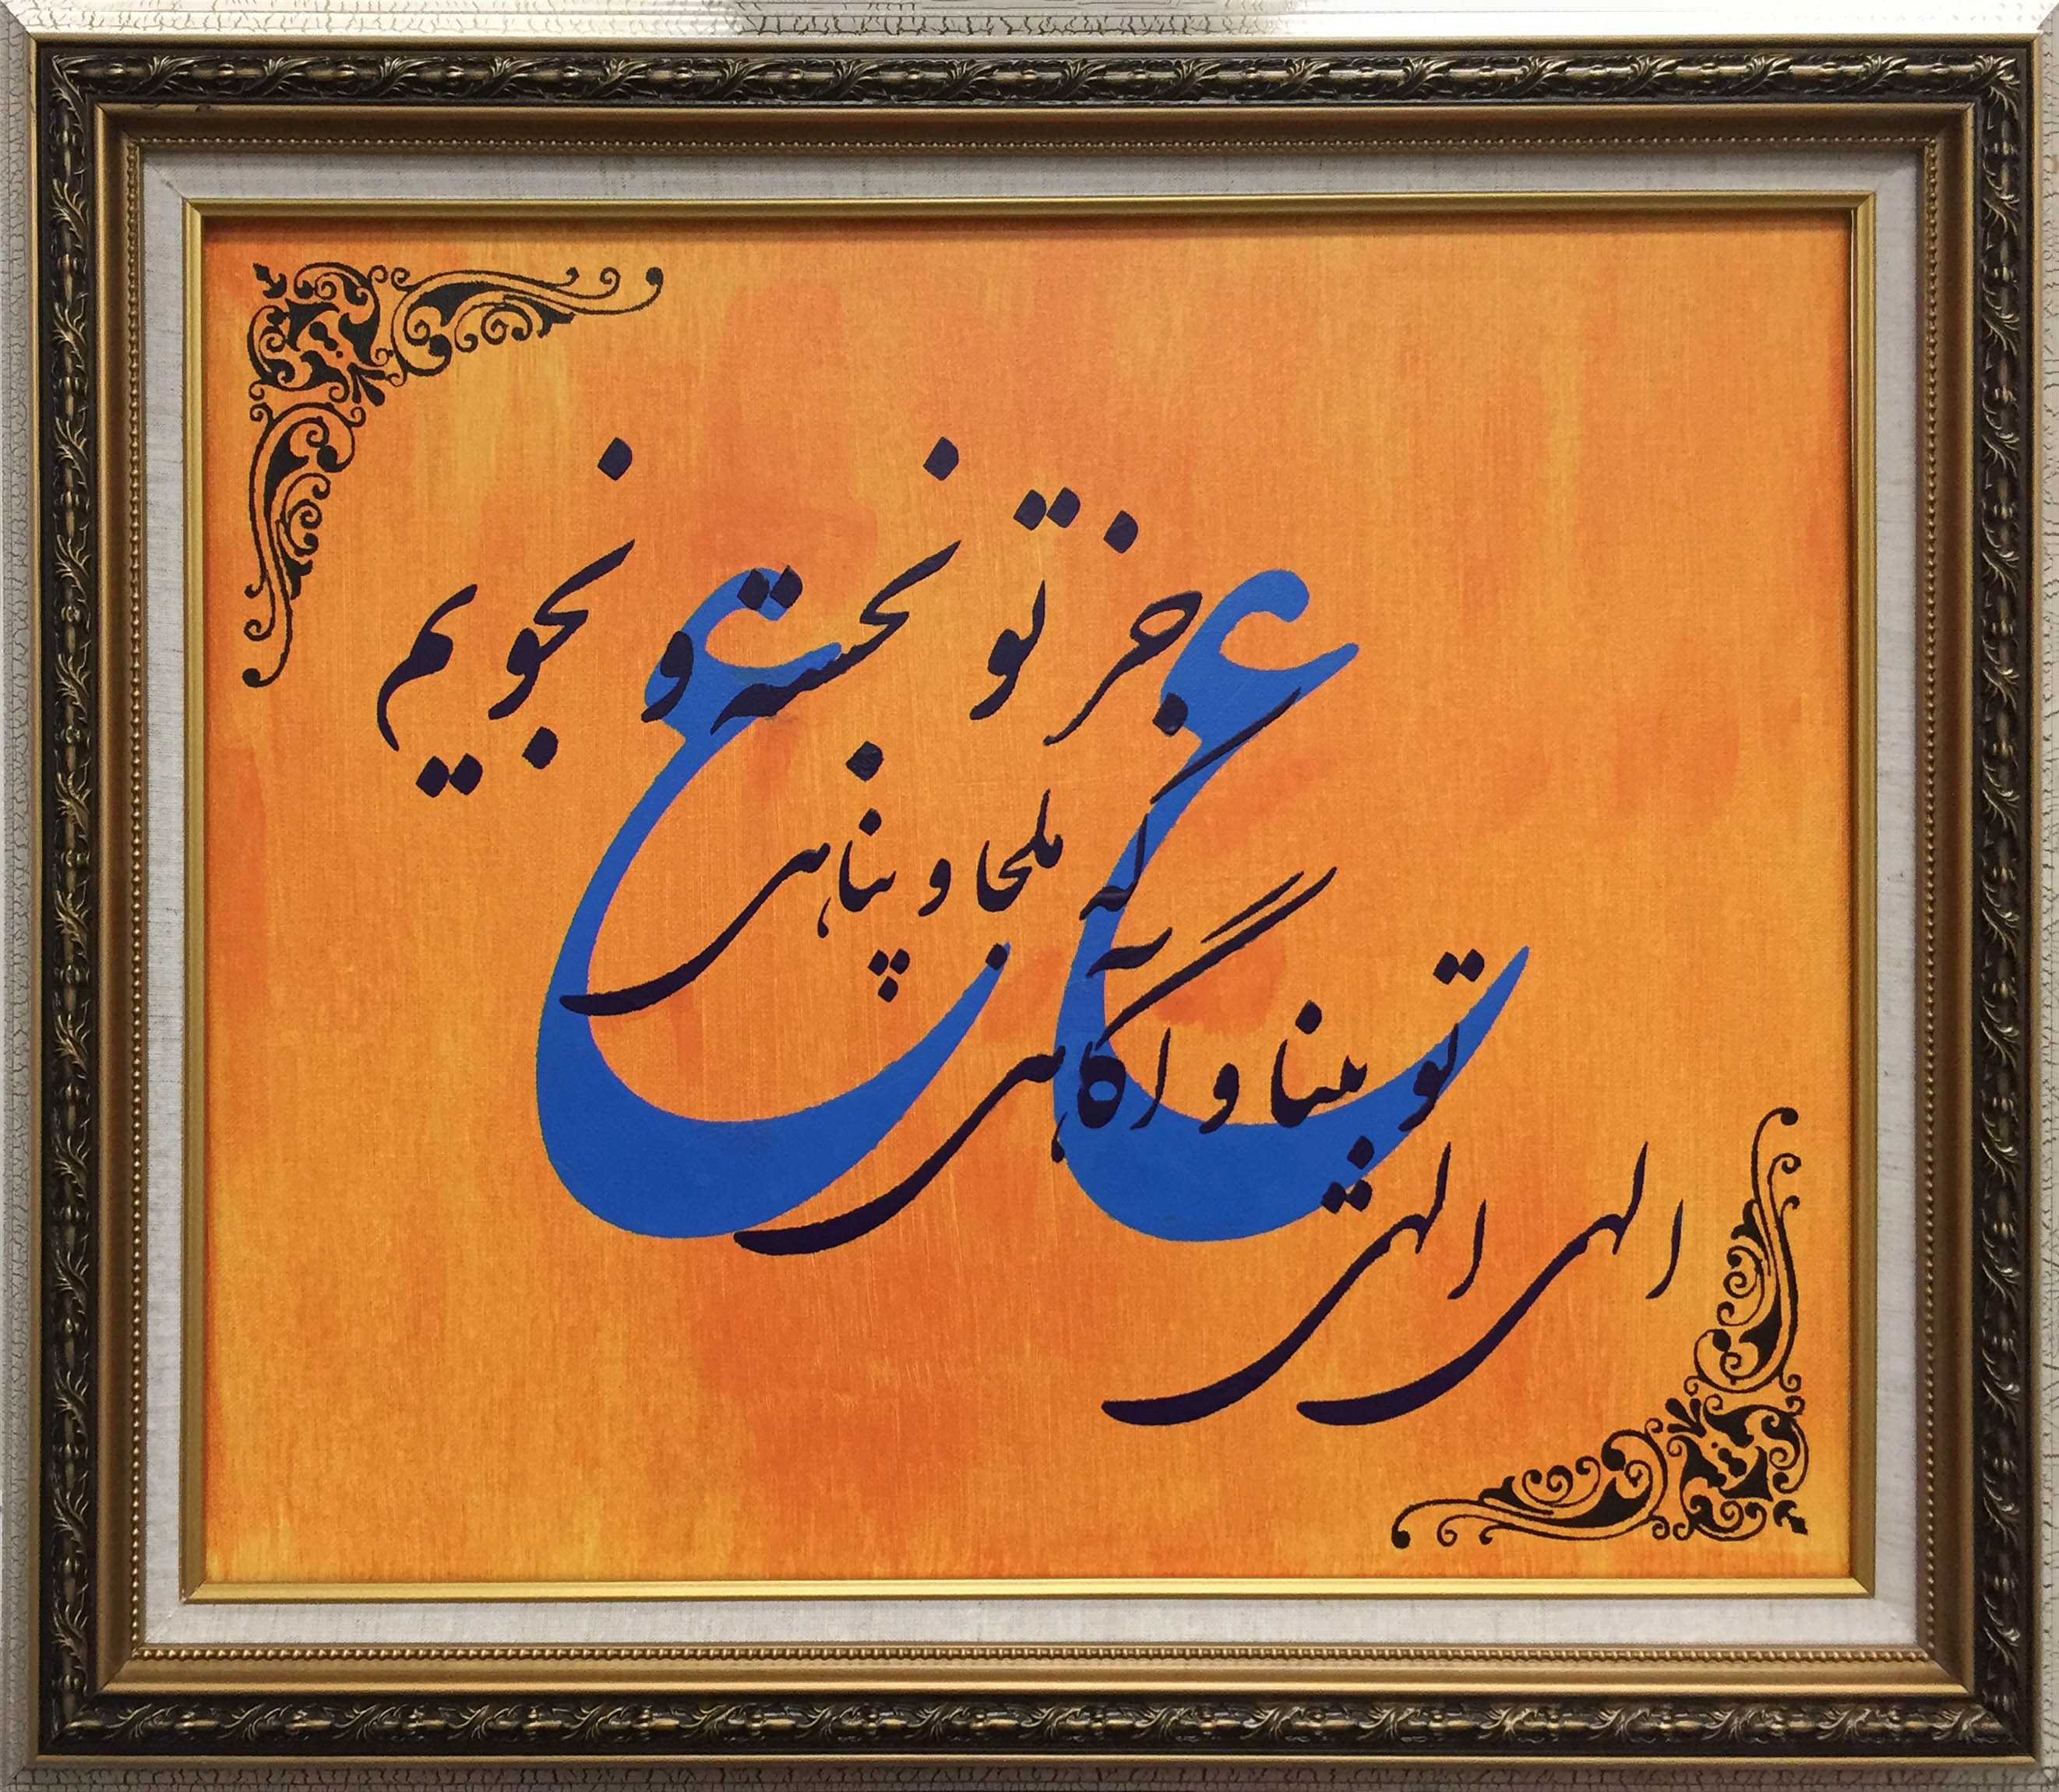 الهی الهی
تو بینا و آگاهی
که ملجا و پناهی
جز تو نجسته و نجویم
ع ع